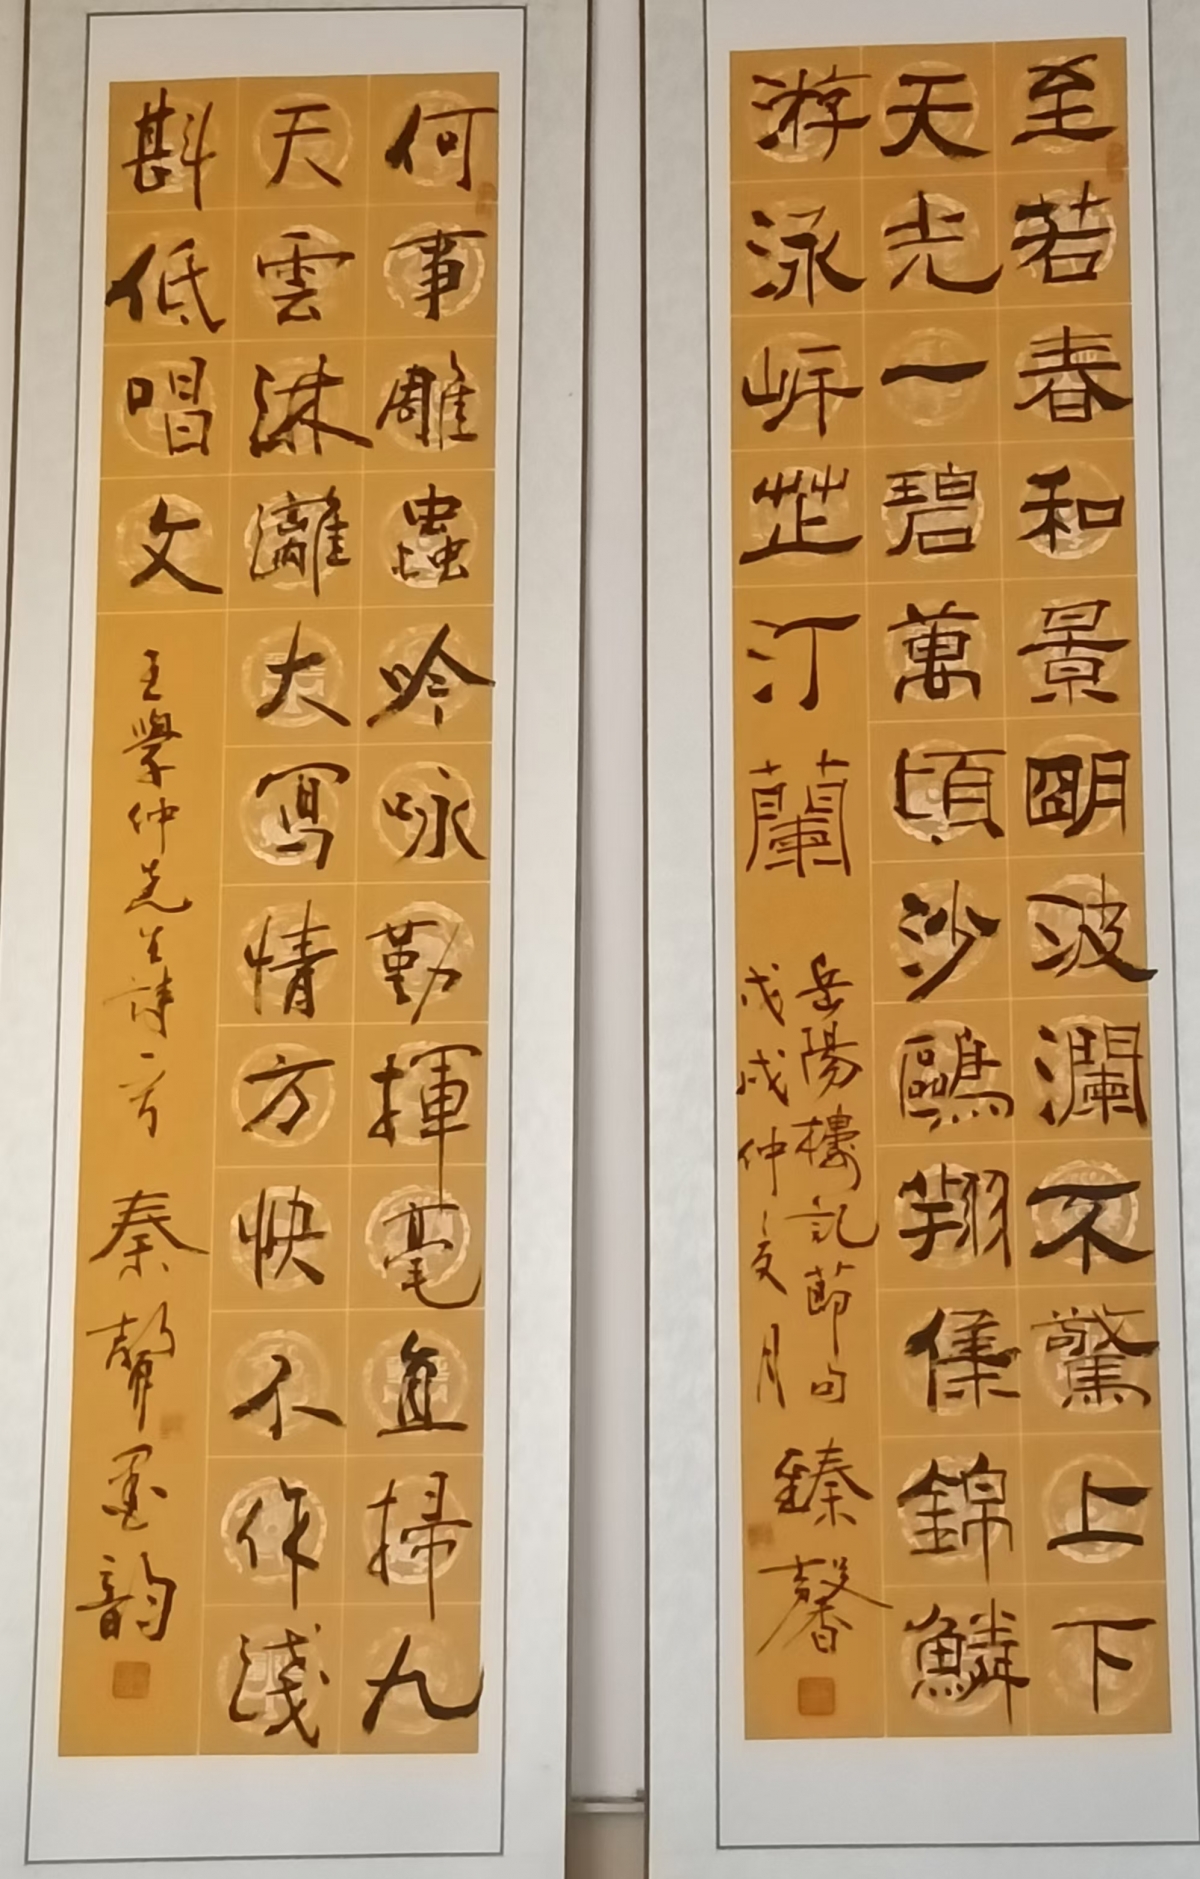 至若春和景明波瀾不驚上下
天光一碧萬頃沙鷗翔集錦鱗
游泳岸芷汀蘭
岳陽樓記節句
戊戌仲夏月
臻馨
何事雕蟲吟咏勤揮毫直掃九
天雲淋灕大寫情方快不作淺
斟低唱文
王學仲先生詩一首
秦聲墨韵